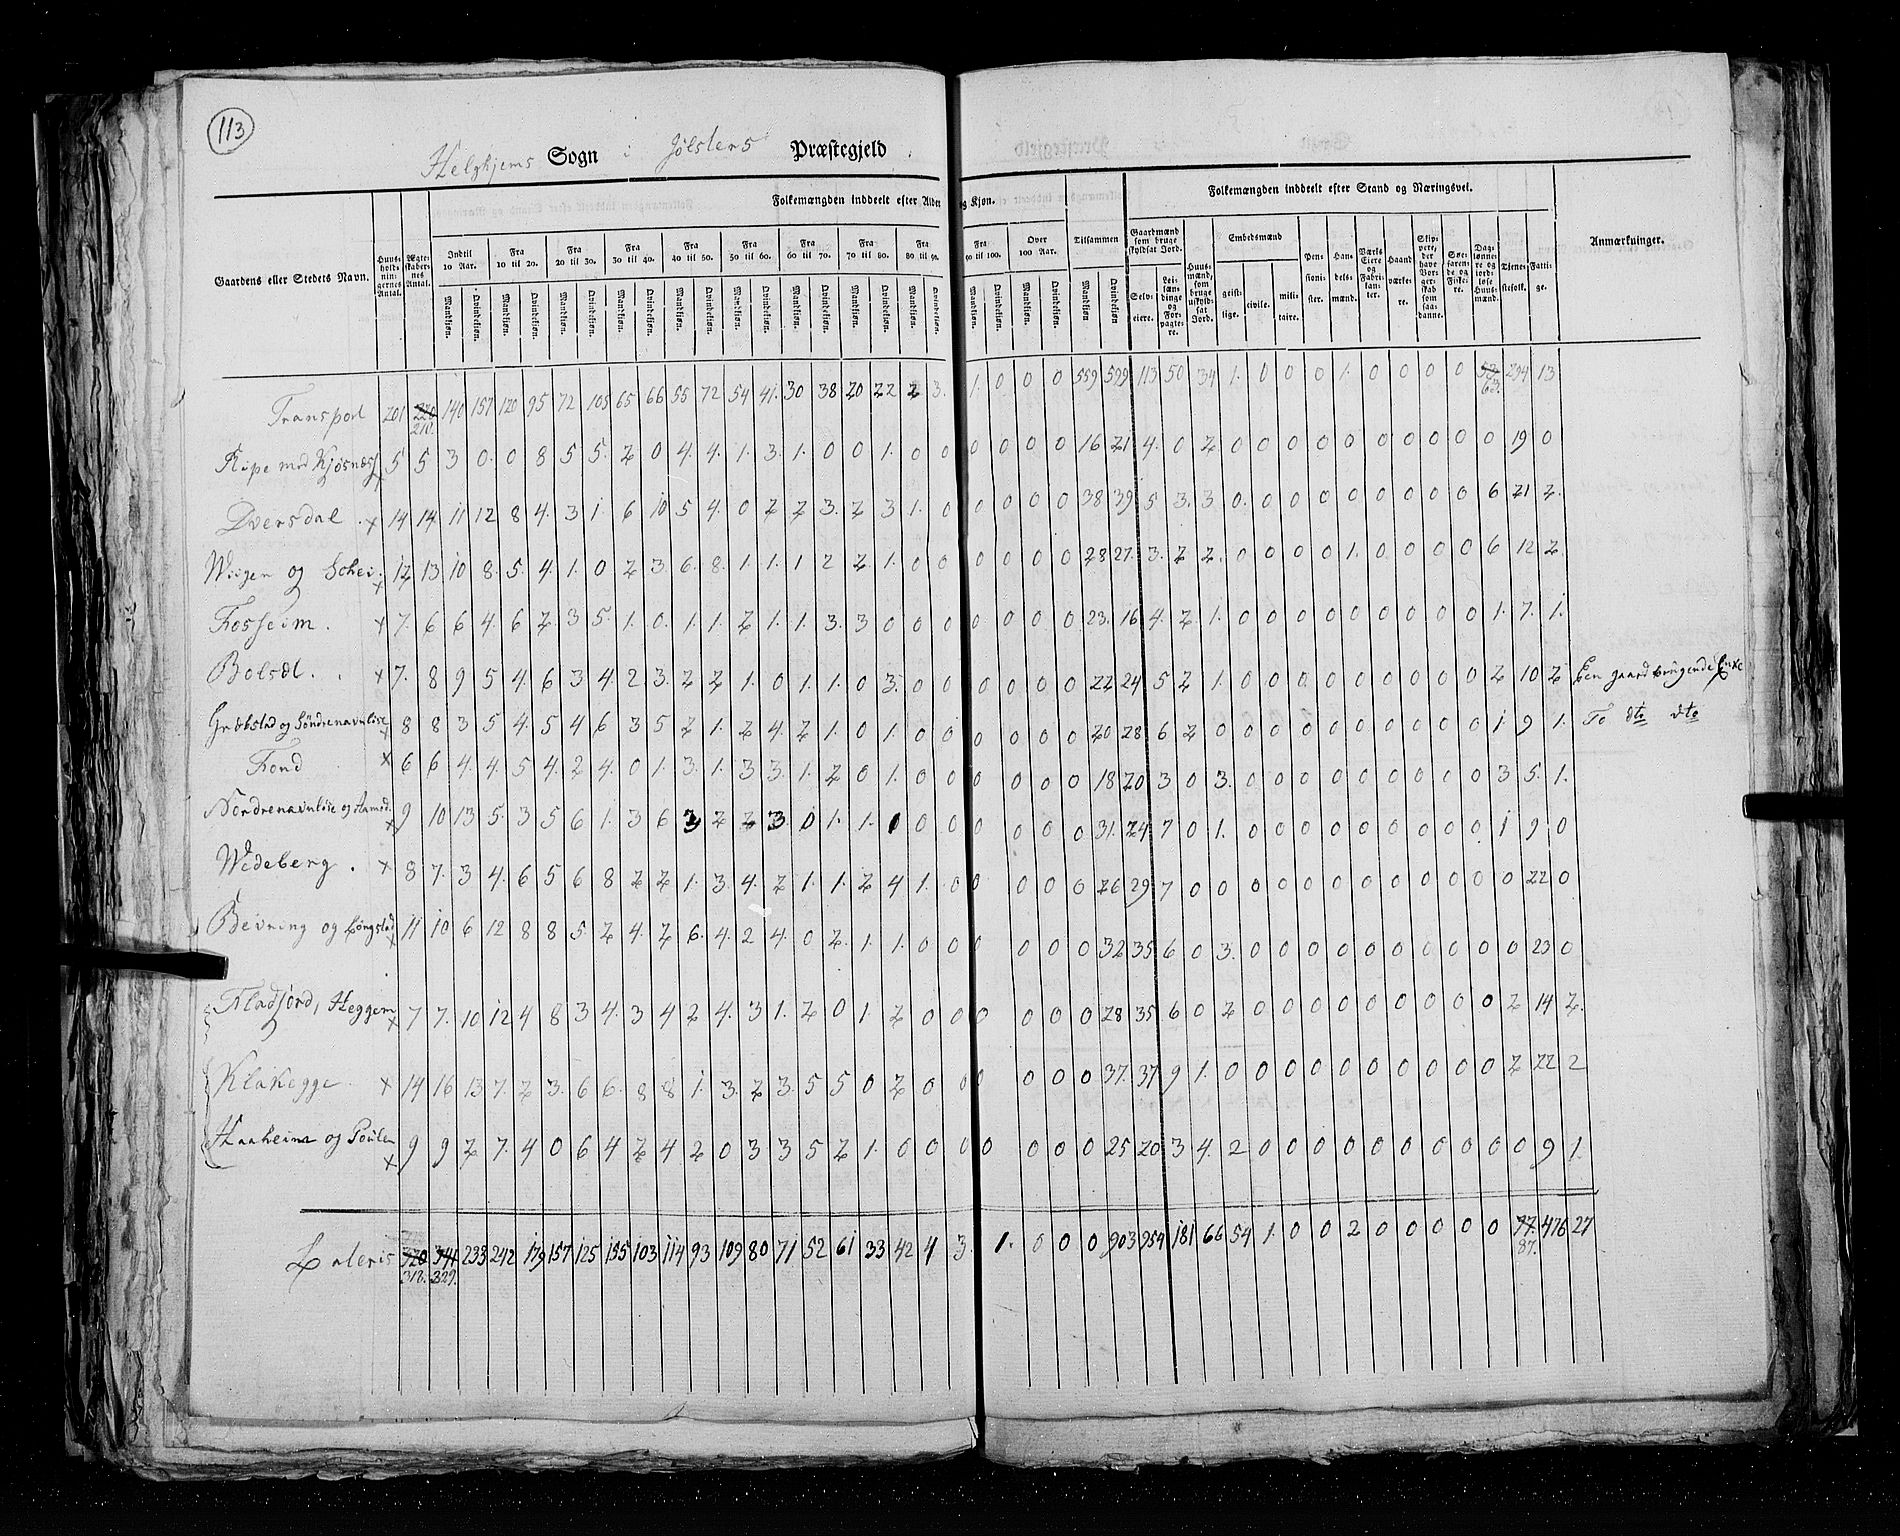 113
Helghjems Sogn i Jølsters Præstegjeld.
Folkemængden inddeelt efter Alder og Kjøn.
Folkemængden inddeelt efter Stand og Næringsvei.
Gaardens eller Stedets Navn.
Huusholdningernes Antal.
Ægteskabernes Antal.
Indtil 10 Aar.
Fra 10 til 20.
Fra 20 til 30.
Fra 30 til 40.
Fra 40 til 50.
Fra 50 til 60.
Fra 60 til 70.
Fra 70 til 80.
Fra 80 til 90.
Fra 90 til 100.
Over 100 Aar.
Tilsammen
Gaardmænd som bruge skyldsat Jord.
Huusmænd, som bruge uskyldsat Jord.
Embedsmænd
Pensionister.
Handelsmænd.
Værks Eiere og Fabrikanter.
Haandværkere.
Skippere, der have Borgerskab som saadanne.
Søefarende og Fiskere.
Daglønnere og jordløse Huusmænd.
Tjenestefolk.
Fattige.
Anmærkninger.
Mandkjøn. Qvindekjøn. Mandkjøn. Qvindekjøn. Mandkjøn. Qvindekjøn. Mandkjøn. Qvindekjøn. Mandkjøn. Qvindekjøn. Mandkjøn. Qvindekjøn. Mandkjøn. Qvindekjøn. Mandkjøn. Qvindekjøn. Mandkjøn. Qvindekjøn. Mandkjøn. Qvindekjøn. Mandkjøn. Qvindekjøn. Mandkjøn. Qvindekjøn
Selveiere. Leilændinge og Forpagtere. geistlige. civile. militaire.
Transport 201 220 210. 140 157 120 95 72 105 65 66 55 72 54 41. 30 38 20 22 2 3. 1. 0 0 0 559 599 113 50 34 1. 0 0 0 1. 0 0 0 0 53. 63. 294 13
Flupe med Kjøsnæss x 5 5 3 0. 0 8 5 5. 2 0 4. 4. 1. 3. 1. 0 0 1. 0 0 0 0 0 0 16 21 4. 0 2 0 0 0 0 0 0 0 0 0 0 0 19 0
Dversdal. x 14 14 11 12 8 4. 3 1. 6 10 5 4. 0 2 2 3. 2 3 1. 0 0 0 0 0 38 39 5 3. 3 0. 0 0 0 0 0 0 0 0 0 6 21 2.
Wiigen og Schei. x 12 13 10 8. 5. 4 1. 0 2 3. 6. 8. 1. 1. 1 2 2. 1. 0 0 0 0 0 0 28 27. 3. 2 2. 0 0 0 0 1. 0 0 0 0 6 12 2
Fosheim. x 7. 6 6 4. 6 2 3 5. 1. 0. 1. 1. 2 1. 1. 3. 3 0 0 0 0 0 0 0 23. 16 4. 2. 1. 0 0 0 0 0 0 0 0 0 0 1. 7. 1.
Bolsæl. . x 7. 8 9 5 4. 6 3 4. 2 3. 2 2 1. 0 1. 1. 0 3. 0 0 0 0 0 0 22 24 5 2 1. 0 0 0 0 0 0 0 0 0 0 2 10 2 Een gaardbrugende Enke
Græbstad og Søndrenavnløse x 8 8 3 5 4. 5 4 6 3 5 2 1. 2 4. 2 1. 0 1. 0 0 0 0 0 0 20 28 6 2 0 0 0 0 0 0 0 0 0 0 1 9 1. To dto dto
Fond x 6 6 4. 4. 5 4. 2 4. 0 1. 3. 1. 3 3. 1. 2 0 1. 0 0 0 0 0 0 18 20 3 0 3. 0 0 0 0 0 0 0 0 0 0 3 5. 1.
Nordrenavnløse og Aamod. x 9 10 13 5. 3 5 6 1. 3 6 3 2 2 3. 0 1. 1. 0 0 0 0 0 0 0 31. 24. 7 0 1. 0 0 0 0 0 0 0 0 0 0 1 9 0
Wedeberg. x 8 7. 3 4. 6 5 6 8 2 2 1. 3. 4. 2 1. 1. 2 4 1. 0 0 0 0 0 26 29 7 0 0 0 0 0 0 0 0 0 0 0 0 22 0
Bevring og Longstad x 11 10 6 12 8 8 5. 2 4. 2 6. 4. 2 4. 0 2. 1. 1. 0 0 0 0 0 0 32 35 6 0 3. 0 0 0 0 0 0 0 0 0 0 0 23 0
Fladjord, Heggem x 7 7. 10 12 4 8 3 4. 3 4 2 4. 3 1. 2 0 1. 2 0 0 0 0 0 0 28 35 6 0 2 0 0 0 0 0 0 0 0 0 0 2 14 2.
Klakegge x 14 16 13 7. 2 3. 6 6. 8 8 1. 3. 2 3. 5 5 0 2 0 0 0 0 0 0 37. 37 9 1. 0 0 0 0 0 0 0 0 0 0 2 22 2
Haaheim og Poulen x 9 9 2 7. 4 0 6 4 2 4 2 0 3 3 5 2 1. 0 0 0 0 0 0 0 25 20 3 4. 2 0 0 0 0 0 0 0 0 0 0 0 9 1.
Lateris 320 318. 341 329. 233 242 179 157 125 155 103 114 93 109 80 71 52 61 33 42 4 3. 1. 0 0 0 903 954 181 66 54 1. 0 0 2 0 0 0 0 0 77. 87. 476 27